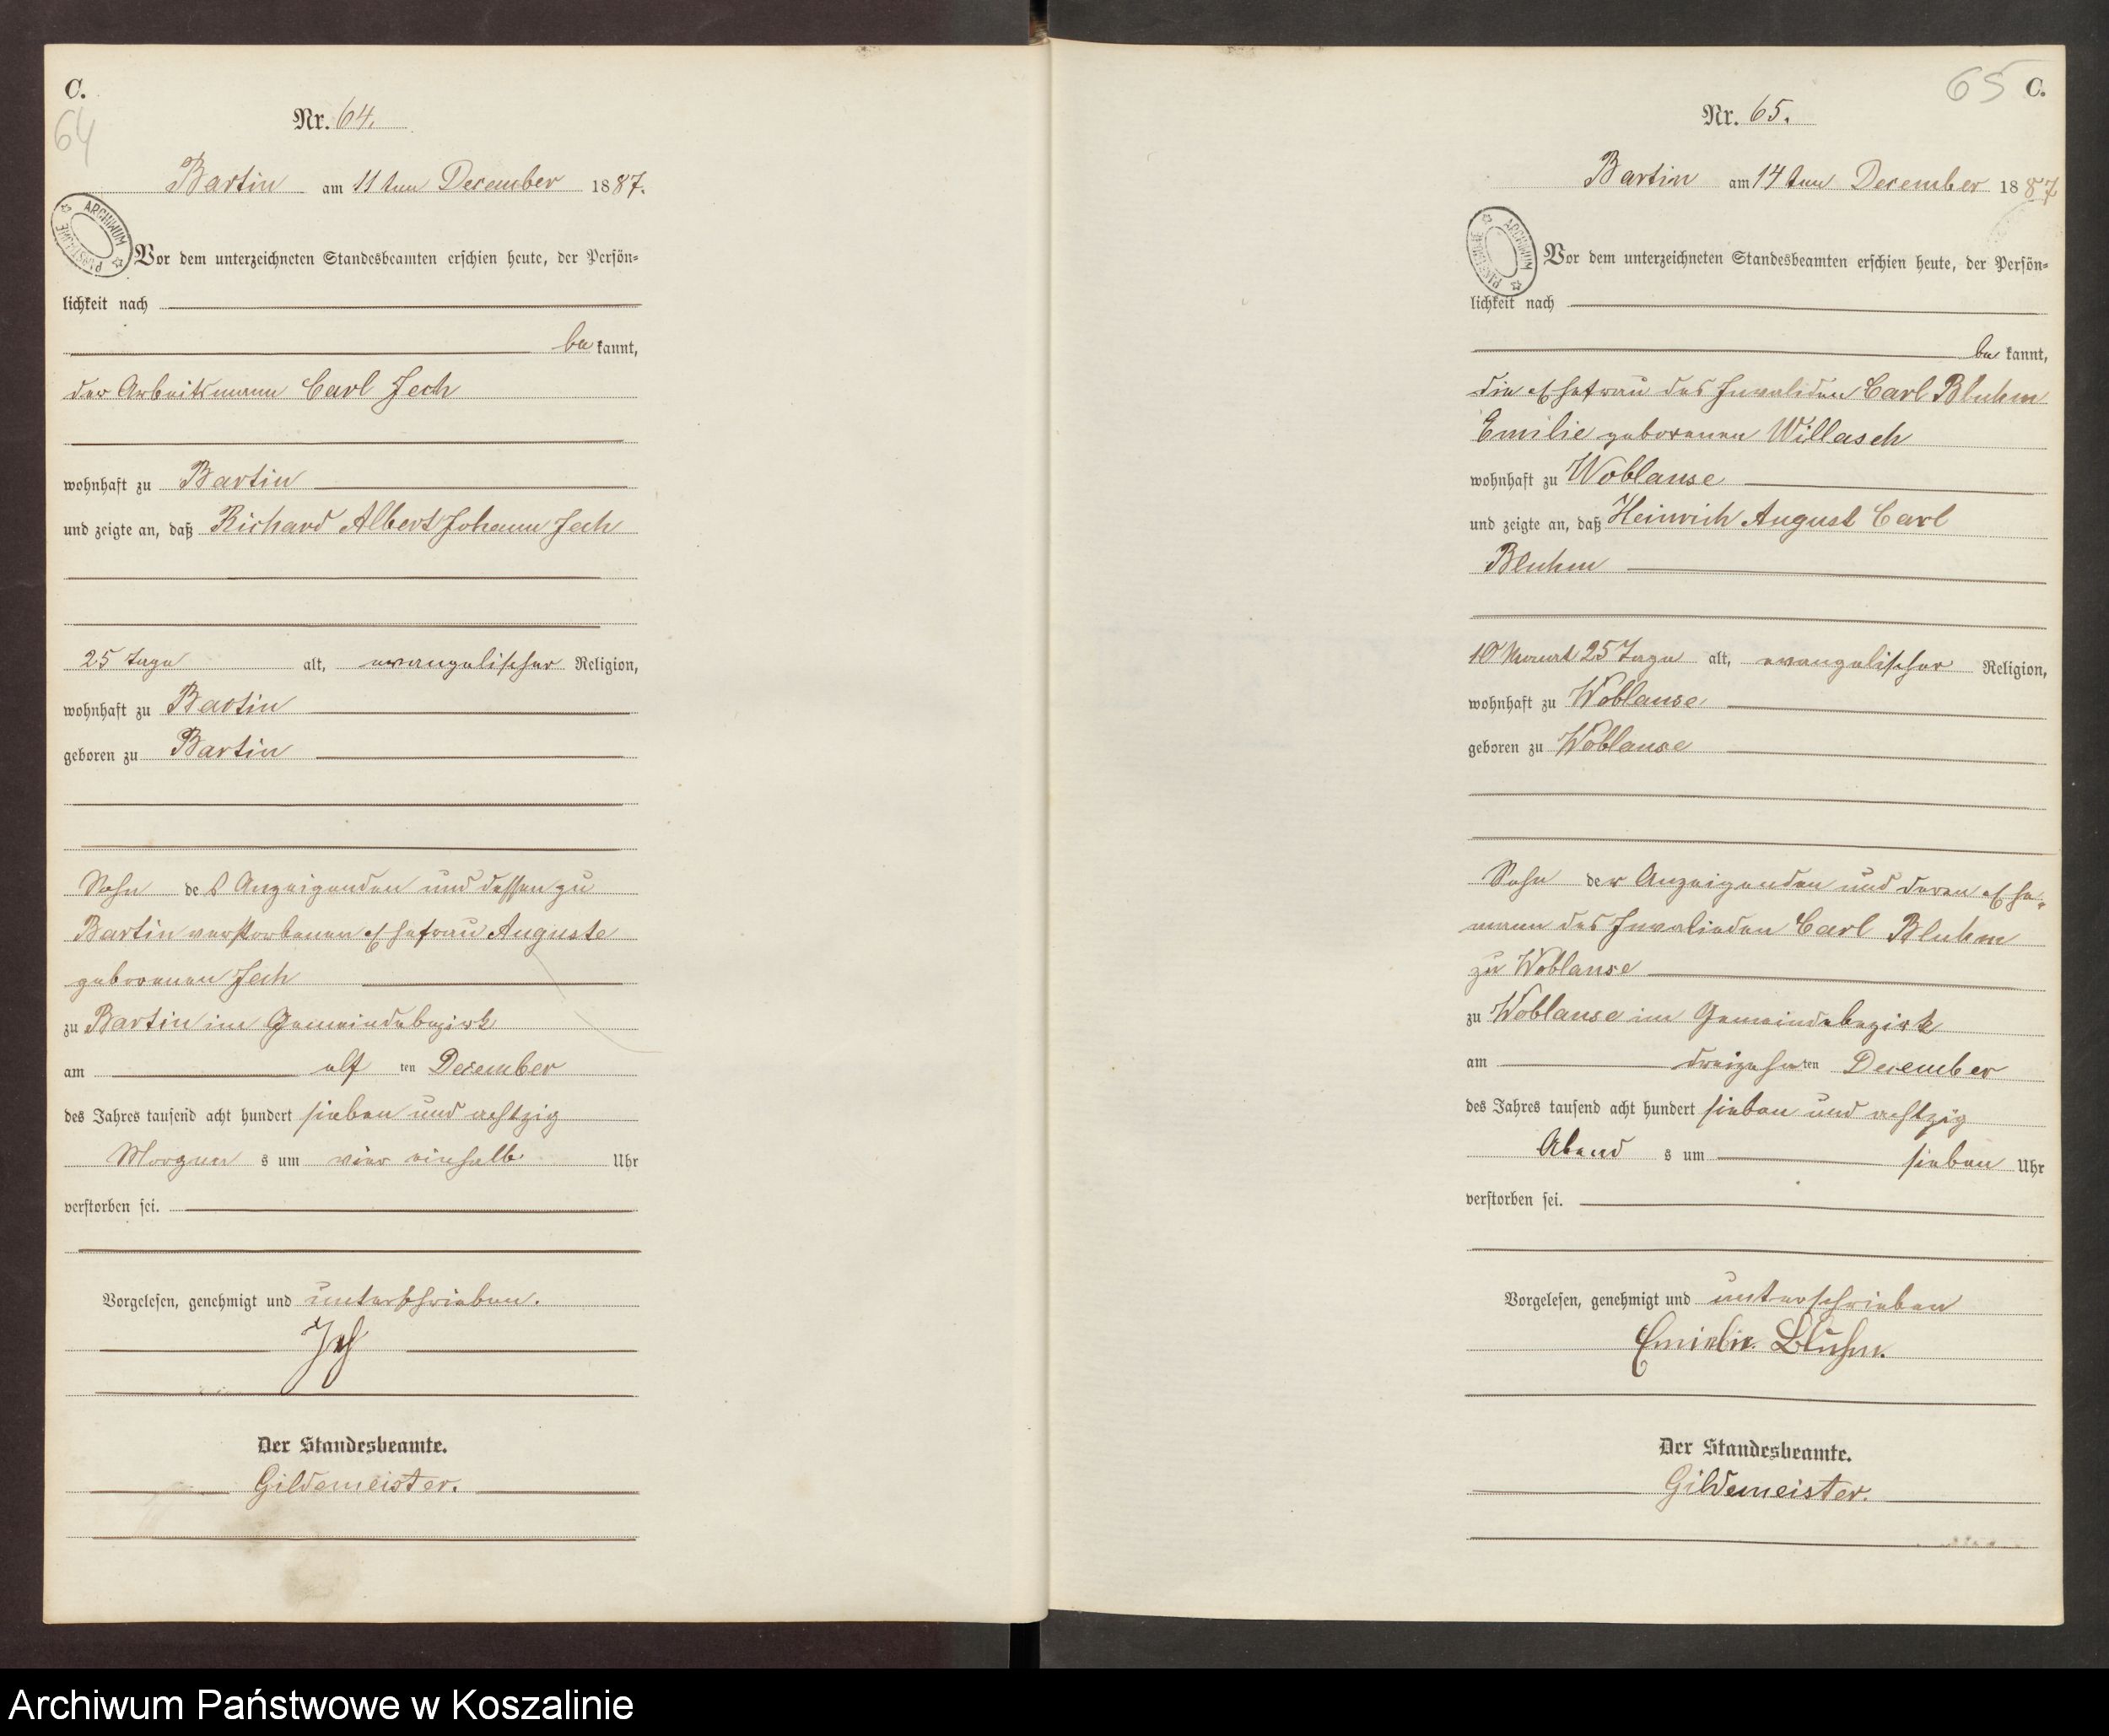 C.
64
Nr. 64.
Bartin am 11ten December 1887.
ARCHIWUM PAŃSTWOWE
Vor dem unterzeichneten Standesbeamten erschien heute, der Persön=
lichkeit nach
bekannt,
der Arbeitsmann Carl Jech
wohnhaft zu Bartin
und zeigte an, daß Richard Albert Johann Jech
25 Tage alt, evangelischer Religion,
wohnhaft zu Bartin
geboren zu Bartin
Sohn des Anzeigenden und dessen zu
Bartin verstorbenen Ehefrau Auguste
geborenen Jech
zu Bartin im Gemeindebezirk
am elf ten December
des Jahres tausend acht hundert sieben und achtzig
Morgen s um vier einhalb Uhr
verstorben sei.
Vorgelesen, genehmigt und unterschrieben.
Jech
Der Standesbeamte.
Gildemeister.
65 C.
Nr. 65.
Bartin am 14ten December 1887
ARCHIWUM PAŃSTWOWE
Vor dem unterzeichneten Standesbeamten erschien heute, der Persön=
lichkeit nach
bekannt,
die Ehefrau des Invaliden Carl Bluhm
Emilie geborenen Willasch
wohnhaft zu Woblanse
und zeigte an, daß Heinrich August Carl
Bluhm
10 Monat 25 Tage alt, evangelischer Religion,
wohnhaft zu Woblanse
geboren zu Woblanse
Sohn der Anzeigenden und deren Ehe-
mann des Invalieden Carl Bluhm
zu Woblanse
zu Woblanse im Gemeindebezirk
am dreizehn ten December
des Jahres tausend acht hundert sieben und achtzig
Abend s um sieben Uhr
verstorben sei.
Vorgelesen, genehmigt und unterschrieben
Emielie Bluhm.
Der Standesbeamte.
Gildemeister.
Archiwum Państwowe w Koszalinie